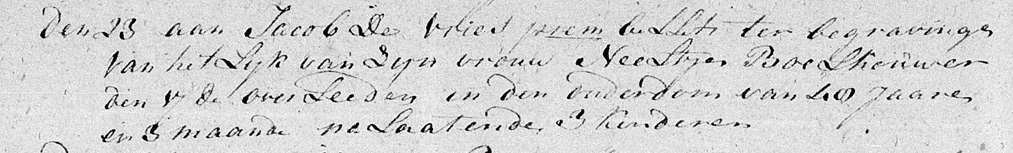 den 23 aan Jacob De Vries prem billiti ter begravinge
van het Lyk van Zyn vrouw Neeltjen Boekhouwer
den d: overLeeden in den ouderdom van 48 Jaare
en 3 maande naLaatende 3 kinderen